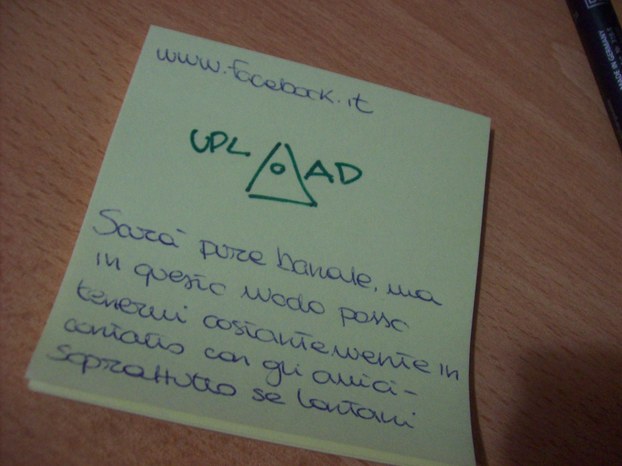 www.facebook.it
UPLOAD
Sarà pure banale, ma
in questo modo posso
tenermi costantemente in
contatto con gli amici-
soprattutto se lontani
MADE IN GERMANY